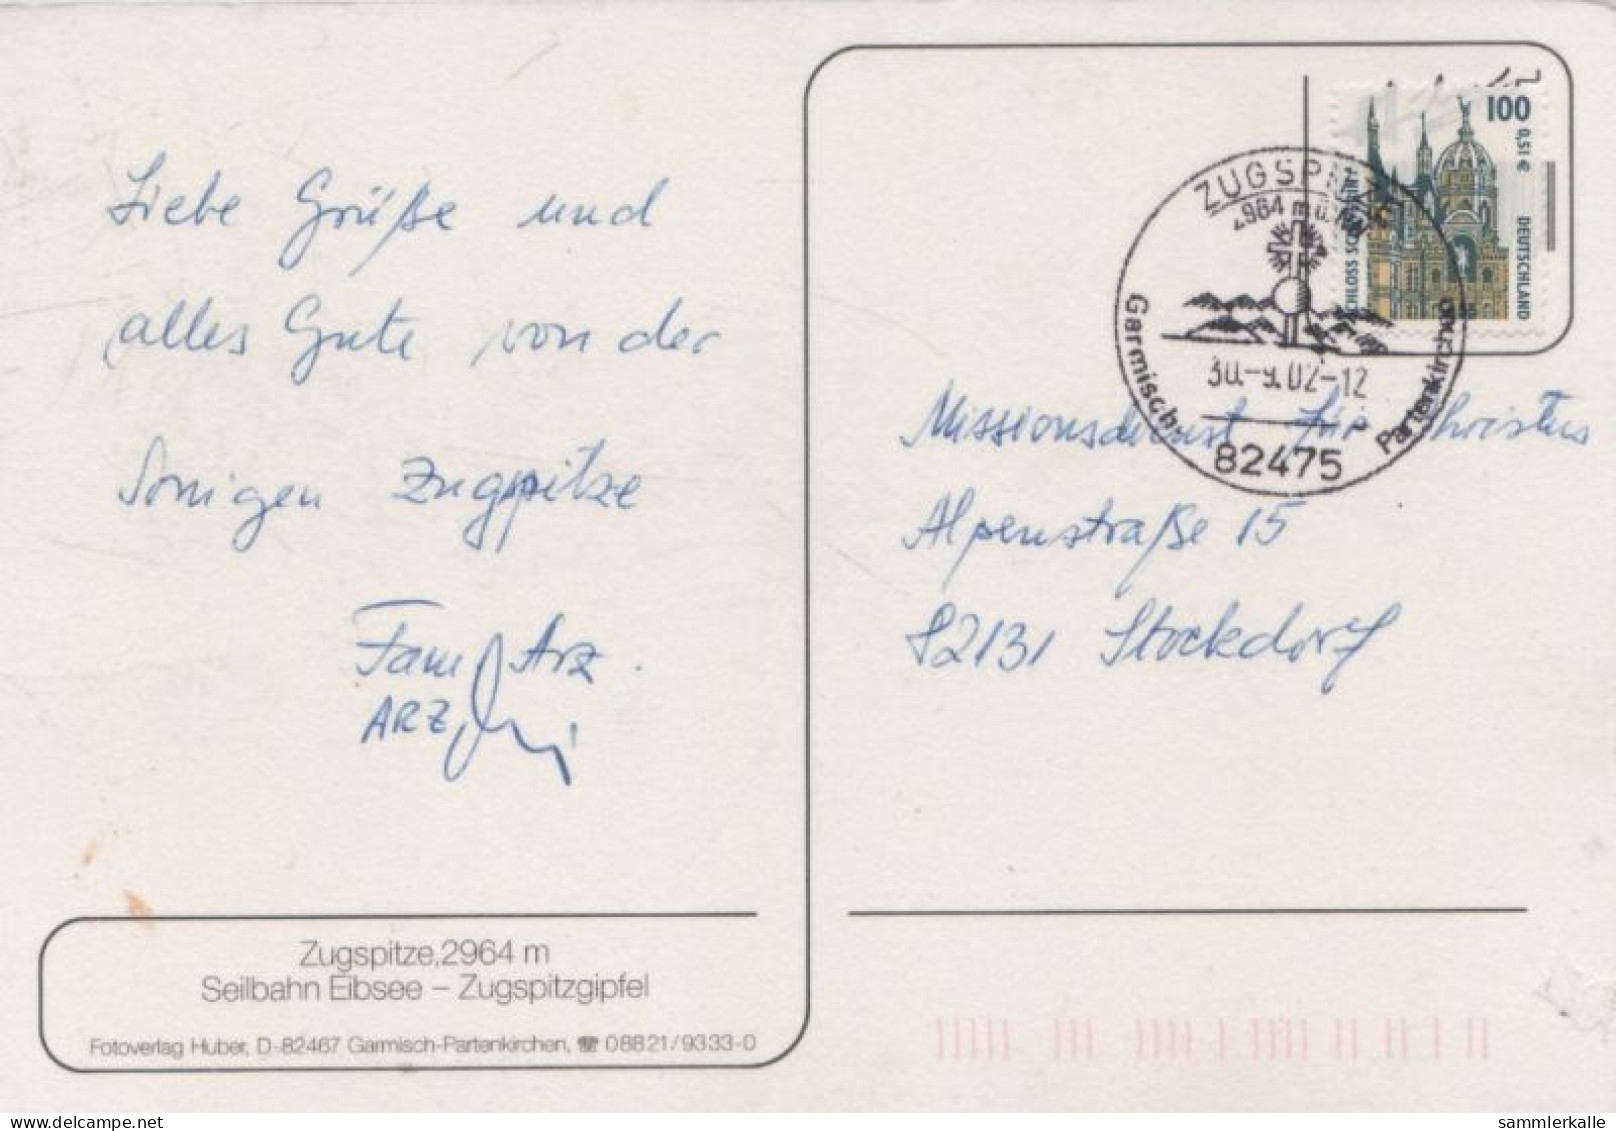 Liebe Grüße und
alles Gute von der
Sonigen Zugspitze
Fam. Arz.
ARZ
Zugspitze, 2964 m
Seilbahn Eibsee – Zugspitzgipfel
Fotoverlag Huber, D-82467 Garmisch-Partenkirchen, ☎ 08821/9333-0
100
0,51 €
DEUTSCHLAND
SCHLOSS
ZUGSPITZE
2964 m ü. NN
30.-9.02-12
Garmisch- Partenkirchen
82475
Missionsdienst für Christus
Alpenstraße 15
82131 Stockdorf
sammlerkalle